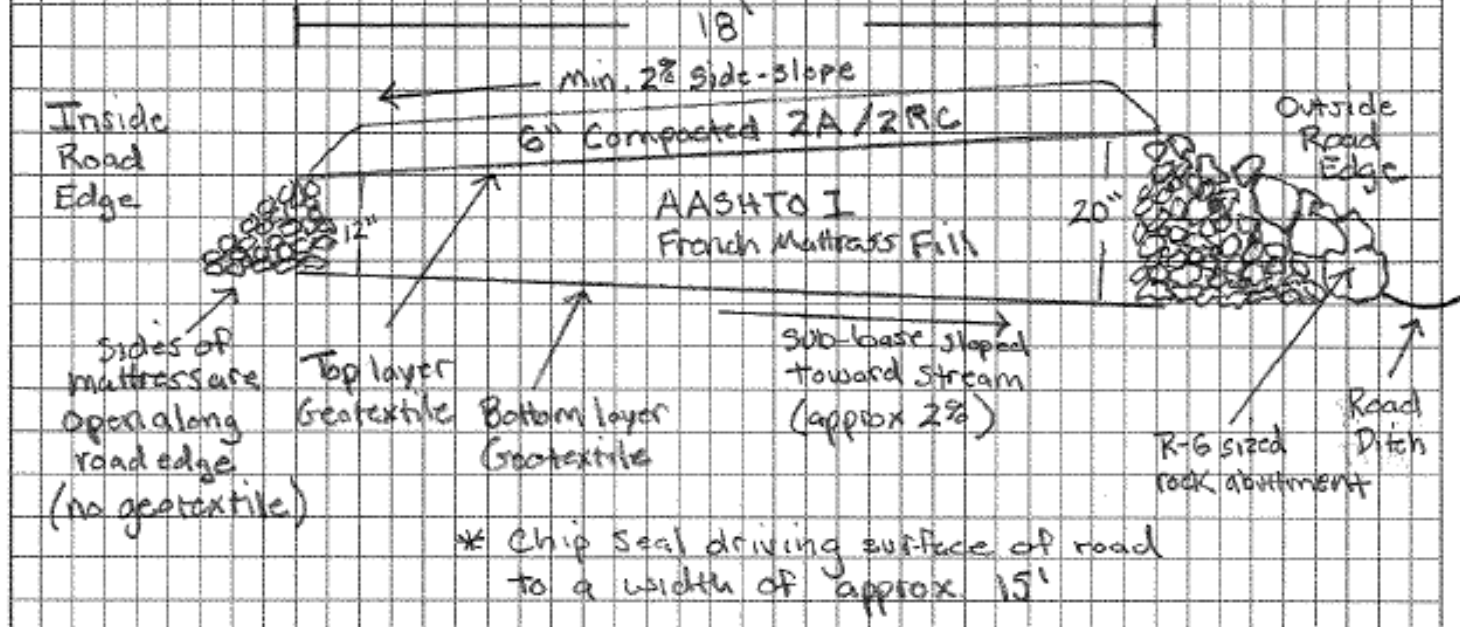 18'
Min. 2% Side-slope
Inside
Road
Edge
6" Compacted 2A/2RC
Outside
Road
Edge
12"
AASHTO I
French Mattrass Fill
20"
Sides of
mattress are
open along
road edge
(no geotextile)
Top layer
Geotextile
Bottom layer
Geotextile
Sub-base sloped
toward stream
(approx 2%)
R-6 sized
rock abuttment
Road
Ditch
* Chip Seal driving surface of road
to a width of approx 15'